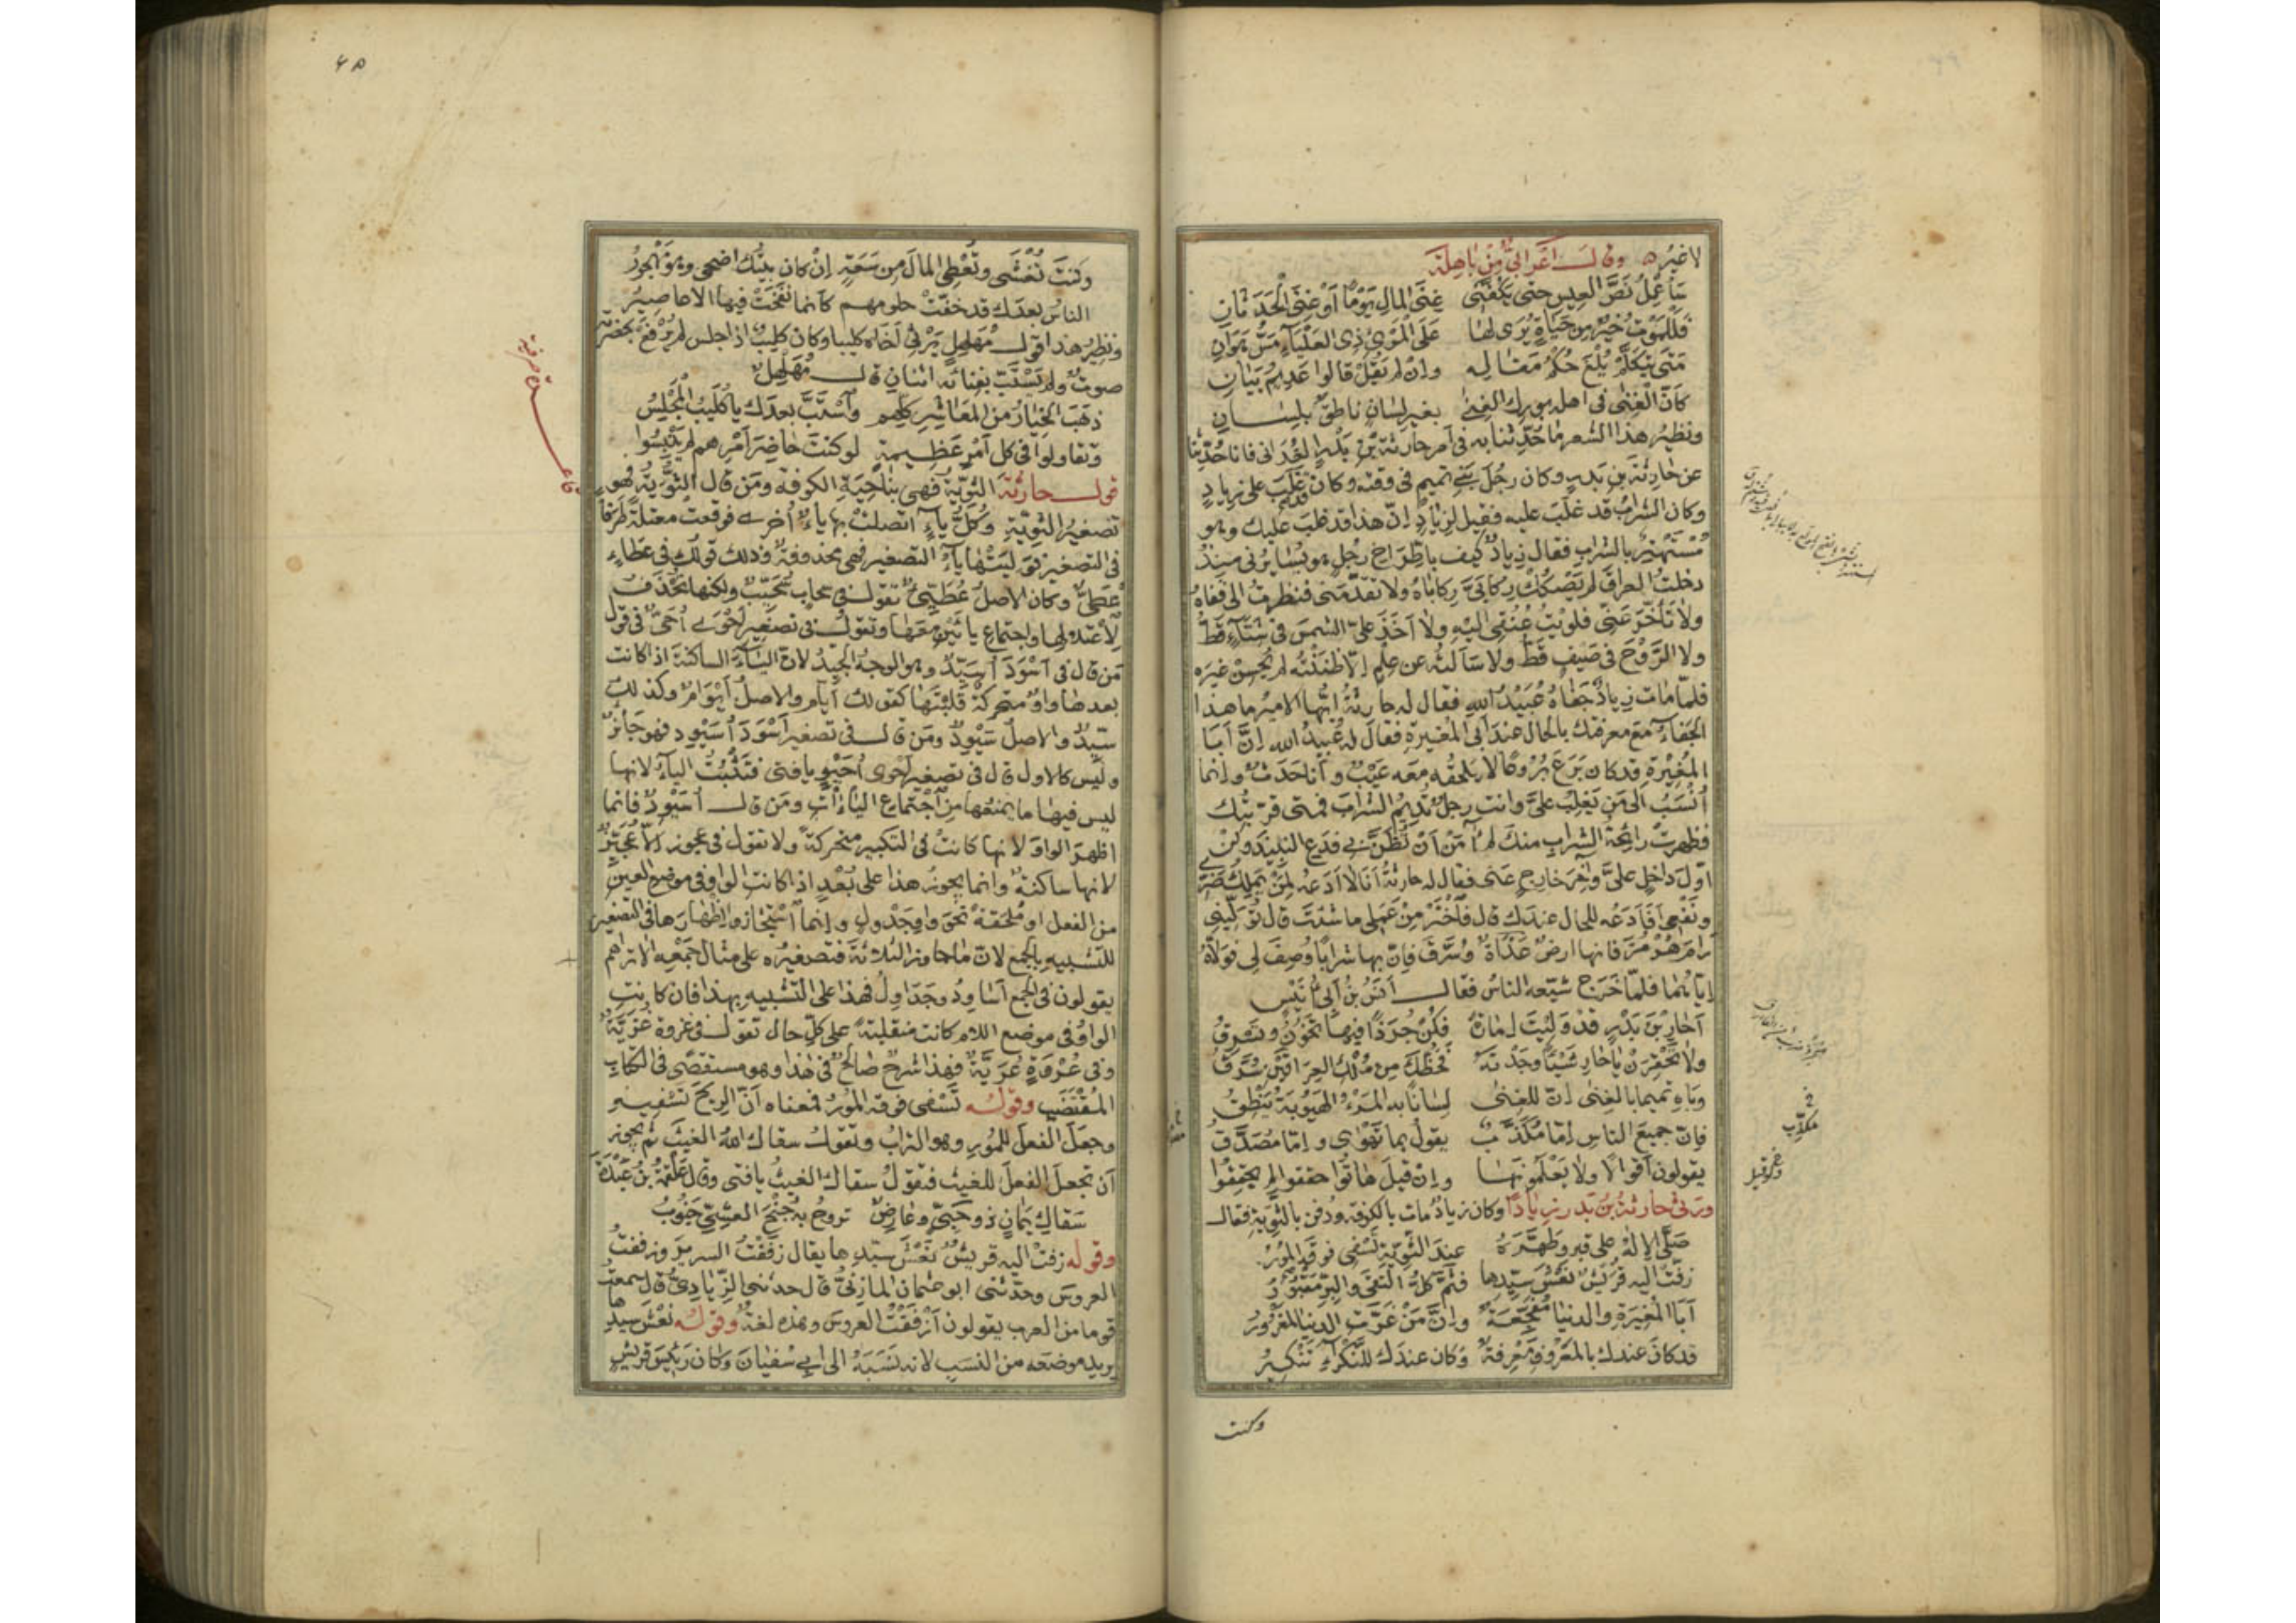 لا غيره وقال اعرابيٌّ مِنْ بَاهِلَة
سَأُعْمِلُ نَصَّ العِيسِ حتى يَكُفَّني غِنَى المالِ يَوْمًا أوْ غِنَى الحَدَثَانِ
فَلَلْمَوْتُ خيرٌ مِن حَيَاةٍ يُرَى لها عَلَى المَرْءِ ذِي العَلْيَاءِ مَسُّ هَوَانِ
مَتَى يَتَكَلَّمْ يُلْغَ حُكْمُ مَقَالِهِ وإنْ لم يَقُلْ قالوا عَدِيمُ بَيَانِ
كأنّ الغِنَى في اهله بورك الغِنَى بغير لِسَانٍ ناطِقٌ بلِسَانِ
ونظيرُ هذا الشعر ما حُدِّثنا به في أمر حارثةَ بنِ بَدْرٍ الغُدَاني فانا حُدِّثنا
عن حارثةَ بنِ بَدْرٍ وكان رجلَ بني تميم في وقته وكان قد غَلَبَ على زيادٍ
وكان الشرابُ قد غلَبَ عليه فقيل لزيادٍ إنّ هذا قد غلبَ عليك وهو
مُسْتَهْتِرٌ بالشراب فقال زيادٌ كيف باطّراحِ رجُلٍ هو يُسَايِرُني منذُ
دخلتُ العراقَ لم يَصْكُكْ رِكابي رِكاباه ولا تقدّمَني فنظرتُ الى قَفاهُ
ولا تأخّرَ عَنّي فلويتُ عُنُقي اليهِ ولا أخَذَ عَلَيّ الشمسَ في شِتَاءٍ قَطُّ
ولا الرَّوْحَ في صَيفٍ قَطُّ ولا سَألتُه عن عِلْمٍ إلا ظنَنْتُه لم يُحسِنْ غيرَه
فلمّا ماتَ زيادٌ جَفَاهُ عُبَيْدُ اللهِ فقال له حارثةُ ايّها الاميرُ ما هذا
الجَفَاءُ مَعَ معرفتك بالحال عندَ أبي المُغيرة فقال له عُبيدُ الله إنّ أبا
المُغِيْرَةِ قد كان بَرَعَ بُرُوعًا لا يلحقُه معه عَيْبٌ وأنا حَدَثٌ وإنما
أُنْسَبُ الى مَن يَغلِبُ عليَّ وانت رجلٌ تُدِيمُ الشرابَ فمتى قرّبتُك
فظهرتْ رائحةُ الشرابِ منكَ لم آمَنْ أنْ يُظَنّ بي فدَعِ النبيذَ وكُنْ
أوّلَ داخلٍ عليَّ وآخِرَ خارجٍ عَنّي فقال له حارثةُ أنا لا أدَعُه لِمَنْ يَملِكُ ضَرّي
ونَفْعي أفأدَعُه للحال عندك قال فاخْتَرْ مِنْ عَمَلي ما شئتَ قال تُوَلّيني
رَامَ هُرْمُزَ فانها ارضٌ عَذَاةٌ وسُرَّقَ فإنّ بها شرابًا وُصِفَ لي فوَلّاهُ
إيّاهُما فلمّا خَرَج شيّعه الناسُ فقال أنَسُ بنُ أبي أُنَيْس
أحَارِ بْنَ بَدْرٍ قد وَلِيتَ إمَارَةً فكُنْ جُرَذًا فيها تَخُونُ وتَسرقُ
ولا تَحْقِرَنْ يا حَارِ شَيْئًا وجَدْتَهُ فحَظُّكَ مِن مُلْكِ العِرَاقَيْنِ سُرَّقُ
وبَاهِ تميمًا بالغِنَى إنّ للغِنَى لِسانًا به المَرْءُ الهَيُوبَةُ يَنْطِقُ
فإنّ جميعَ الناسِ إمّا مُكَذِّبٌ يقولُ بما تَهْوَى وإمّا مُصَدِّقُ
يقولون أقوالًا ولا يَعْلَمُونَها وإنْ قيلَ هاتُوا حققوا لم يحقّقوا
ورثى حارثةُ بنُ بَدْرٍ زيادًا وكان زيادٌ مات بالكوفة ودُفن بالثويّة فقال
صَلَّى الإلهُ على قبرٍ وطَهَّرَهُ عندَ الثَّوِيّةِ يَسْفي فوقَهُ المُورُ
زفّتْ اليه قُرَيْشٌ نَعْشَ سيّدِها فثَمَّ كلُّ التُّقَى والبِرِّ مَقْبُورُ
أبا المُغِيرَةِ والدنيا مُفَجِّعَةٌ وإنّ مَنْ غَرَّتِ الدنيا لَمَغْرُورُ
قد كانَ عندك بالمَعْرُوفِ مَعْرِفةٌ وكانَ عندَك للنَّكْرَاءِ تَنْكِيرُ
وكنت
مكذّب
٤٥
وكنتَ تُغْشَى وتُعْطِي المالَ مِن سَعَةٍ إنْ كان بيتُك اضحى وهو مهجورُ
الناسُ بعدَك قد خفّتْ حلومهم كأنما نفخَتْ فيها الاعاصيرُ
ونظيرُ هذا قولُ مُهَلْهِلٍ يَرْثي أخاه كليبا وكان كليبٌ اذا جلس لم يُرْفَعْ بحضرته
صوتٌ ولم يَسْتَبّ بفِنائه اثنانِ قال مُهَلْهِلٌ
ذهَبَ الخيارُ مِنَ المَعَاشِرِ كلِّهم واسْتَبَّ بعدَك يا كُلَيْبُ المَجْلِسُ
وتقاولوا في كل أمْرِ عَظِيمةٍ لو كنتَ حاضِرَ أمْرِهم لم يَنْبِسُوا
قول حارثة الثويّة فهي بناحِيَةِ الكوفة ومَن قال الثُّوَيّة فهو
تصغيرُ الثوِيّةِ وكلُّ ياءٍ اتصلتْ بها ياءٌ أخرى فوقعتْ معتلةً طَرَفًا
في التصغير فوَلِيَتْها ياءُ التصغير فهي محذوفة وذلك قولُك في عَطاءٍ
عُطَيٌّ وكان الاصلُ عُطَيِّيٌ تقول في سحابٍ سُحَيِّبٌ ولكنها تُحْذَفُ
لاعتلالها واجتماع ياءَيْنِ معَها وتقول في تصغير أحْوَى أُحَيٌّ في قولِ
مَن قال في أسْوَدَ أُسَيِّدٌ وهو الوجهُ الجيّدُ لانّ الياءَ الساكنةَ اذا كانت
بعدها واوٌ متحركةٌ قلَبْتَها كقولك أيّام والاصلُ أيْوَامٌ وكذلك
سيّدٌ والاصلُ سَيْوِدٌ ومَن قال في تصغير أسْوَدَ أُسَيْوِد فهو جَائِزٌ
وليس كالاول قال في تصغير أحْوى أُحَيْوٍ يا فتى فتَثْبُتُ الياءُ لانها
ليس فيها ما يمنعُها مِن اجتماع الياءَاتِ ومَن قال أُسَيْوِدٌ فانما
اظهَرَ الواوَ لانها كانتْ في التكبير متحركةً ولا تقول في عجوز إلا عُجَيِّزٌ
لانها ساكنةٌ وانما يجوزُ هذا على بُعْدٍ اذا كانت الواوُ في موضع العينِ
من الفعل او مُلحَقةً نحو واوِ جَدْوَلٍ وإنما اسْتجازوا إظهارَها في التصغير
للتشبيهِ بالجمع لانّ ما جاوز الثلاثةَ فتصغيرُه على مثالِ جَمْعِه ألا تراهم
يقولون في الجمع أساوِدُ وجَدَاوِلُ فهذا على التشبيه بهذا فان كانت
الواوُ في موضع اللام كانت منقلبةً على كلّ حال تقول في غزوة غُزَيّةٌ
وفي عُرْوَةٍ عُرَيَّةٌ فهذا شرحٌ صالحٌ في هذا وهو مستقصًى في الكتاب
المُقْتَضَبِ وقوله تَسْفي فوقه المُورُ فمعناه أنّ الريحَ تَسْفيه
وجعَلَ الفعلَ للمُورِ وهو الترابُ وتقول سقاك اللهُ الغيثَ ثم يجوز
أن تجعلَ الفعلَ للغيث فتقولُ سقاك الغيثُ يا فتى وقال عَلْقَمَةُ بنُ عَبَدَةَ
سَقاكِ يَمَانٍ ذو حَبِيٍّ وعارِضٌ تروحُ به جُنْحَ العَشِيِّ جَنُوبُ
وقوله زفتْ اليه قريشٌ نَعْشَ سيّدِها يقال زفَفْتُ السريرَ وزففتُ
العروسَ وحدّثني ابو عثمان المازنيُّ قال حدثني الزِّيادِيُّ قال سمعتُ
قوما من العرب يقولون أزفَفْتُ العروسَ وهذه لغةٌ وقوله نَعْشَ سيدِها
يريد موضعَه من النسَبِ لانه نسَبَهُ الى أبي سُفيانَ وكان رئيسَ قريشٍ